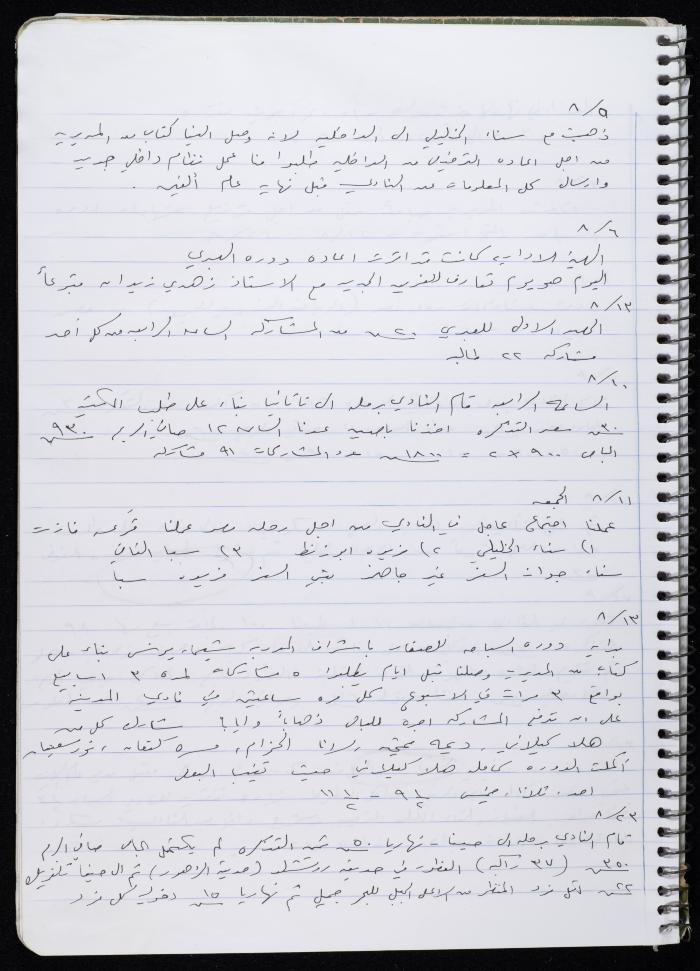 ٨/٩
ذهبت مع سناء الخليلي الى الداخلية لانه وصل الينا كتاب من المديرية
من اجل اعادة الترخيص من الداخلية وطلبوا منا عمل نظام داخلي جديد
وارسال كل المعلومات عن النادي قبل نهاية عام ألفين .
٨/٦
الهيئة الادارية كانت قد اقرت اعادة دورة العبري
اليوم هو يوم تعارف للعبرية الجديدة مع الاستاذ زهدي زيدان متبرعاً
٨/١٣
الحصة الاولى للعبري ٢٠ ش من المشاركة الساعة الرابعة من كل أحد
مشاركة ٢٢ طالبة
٨/١٠
الساعة الرابعة قام النادي برحلة الى ناتانيا بناء على طلب
٣٠ ش سعر التذكرة اخذنا باصين عدنا الساعة ١٢ صافي الربح ٩٣٠ ش
الباص ٩٠٠ × ٢ = ١٨٠٠ ش عدد المشاركات ٩١ مشاركة
٨/١١ الجمعة
عملنا اجتماع عاجل في النادي من اجل رحلة مصر عملنا قرعة فازت
١) سناء الخليلي ٢) فريدة ابو زنط ٣) سبا
سناء جواز السفر غير جاهز بقي السفر فريدة سبا
٨/١٣
بداية دورة السباحة للصغار باشراف المدربة شيماء يونس بناء على
كتاب من المديرية وصلنا قبل ايام يطلبوا ٥ مشاركات لمدة ٣ اسابيع
بواقع ٣ مرات في الاسبوع لكل مرة ساعتين في نادي المدينة
على ان تدفع المشاركة اجرة للباص ذهاباً وايابا شارك كل من
هلا كيلاني ، ديمة ، رانا الخزام ، ميسرة كنعان ، نور
أكملت الدورة كاملة هلا كيلاني حيث تغيب البعض
احد ، ثلاثاء ، خميس ٩ ١/٢ - ١١ ١/٢
٨/٢٣
قام النادي برحلة الى حيفا - نهاريا ٥٠ ش ثمن التذكرة لم يكتمل الباص صافي الربح
٣٥٠ ش (٣٧ راكبة) الفطور في حديقة روتشيلد (مدينة الزهور) ثم الى حيفا تلفريك
٢٢ ش لكل فرد المنظر من اعلى الجبل للبحر جميل ثم نهاريا ١٥ ش دخول لكل فرد